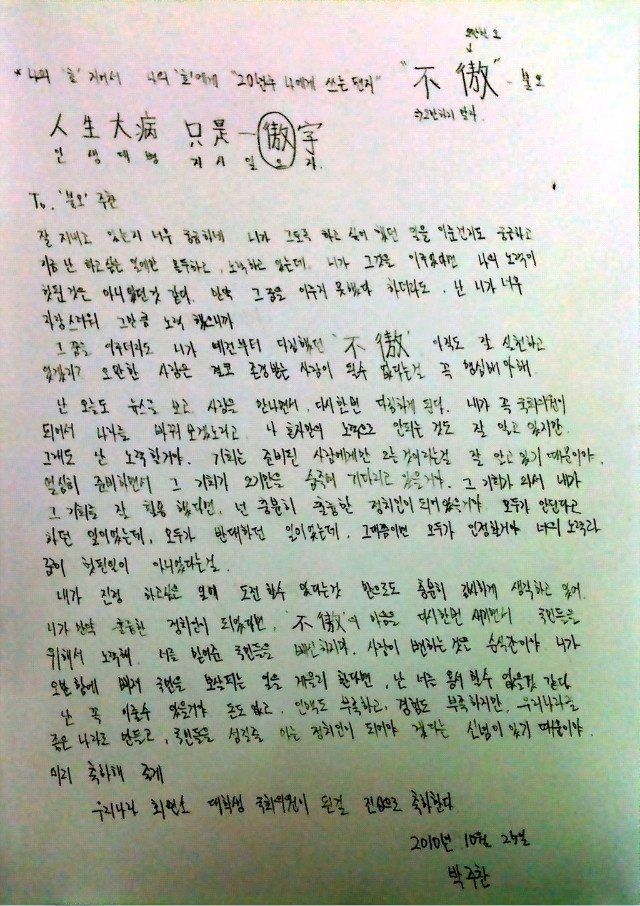 오만할 오
* 나의 '호' 지어서 나의 '호'에게 "20년후 나에게 쓰는 편지" "不傲" - 불오
⇒오만하지 말자.
人生大病 只是一傲字
인생대병 지시일오자.
To. '불오' 주찬
잘 지내고 있는지 너무 궁금하네 니가 그토록 하고 싶어 했던 일을 이룬건지도 궁금하고
지금 난 하고싶은 일에만 몰두하고, 노력하고 있는데, 니가 그것을 이루었다면 나의 노력이
헛된것은 아니였던것 같다. 만약 그 꿈을 이루지 못했다 하더라도, 난 니가 너무
자랑스러워 그만큼 노력 했으니까
그 꿈을 이루더라도 니가 예전부터 다짐했던 '不傲' 아직도 잘 실천하고
있겠지? 오만한 사람은 결코 존경받는 사람이 될수 없다는걸 꼭 명심해야해.
난 오늘도 뉴스를 보고 사람을 만나면서, 다시한번 다짐하게 된다. 내가 꼭 국회의원이
되어서 나라를 바꿔 보겠노라고. 나 혼자만의 노력으로 안되는 것도 잘 알고 있지만.
그래도 난 노력할거야. 기회는 준비된 사람에게만 오는 것이라는걸 잘 알고 있기 때문이야.
열심히 준비하면서 그 기회가 오기만을 숨죽여 기다리고 있을거야. 그 기회가 와서 내가
그 기회를 잘 활용 했다면, 넌 충분히 훌륭한 정치인이 되어있을거야 모두가 안된다고
하던 일이었는데, 모두가 반대하던 일이었는데, 그때쯤이면 모두가 인정할거야 너의 노력과
꿈이 헛된일이 아니었다는걸.
내가 진정 하고싶은 일에 도전 할수 있다는것 만으로도 충분히 감사하게 생각하고 있어.
니가 만약 훌륭한 정치인이 되었다면, '不傲'의 마음을 다시한번 새기면서 국민들을
위해서 노력해. 너를 믿어준 국민들을 배신하지마. 사람이 변하는 것은 순식간이야 니가
오만함에 빠져 국민을 보살피는 일을 게을리 한다면, 난 너를 용서 할수 없을것 같다.
난 꼭 이룰수 있을거야 돈도 없고, 인맥도 부족하고, 경험도 부족하지만, 우리나라를
좋은 나라로 만들고, 국민들을 섬길줄 아는 정치인이 되어야 겠다는 신념이 있기 때문이야.
미리 축하해 줄게
우리나라 최연소 대학생 국회의원이 된걸 진심으로 축하한다
2010년 10월 24일
박주찬